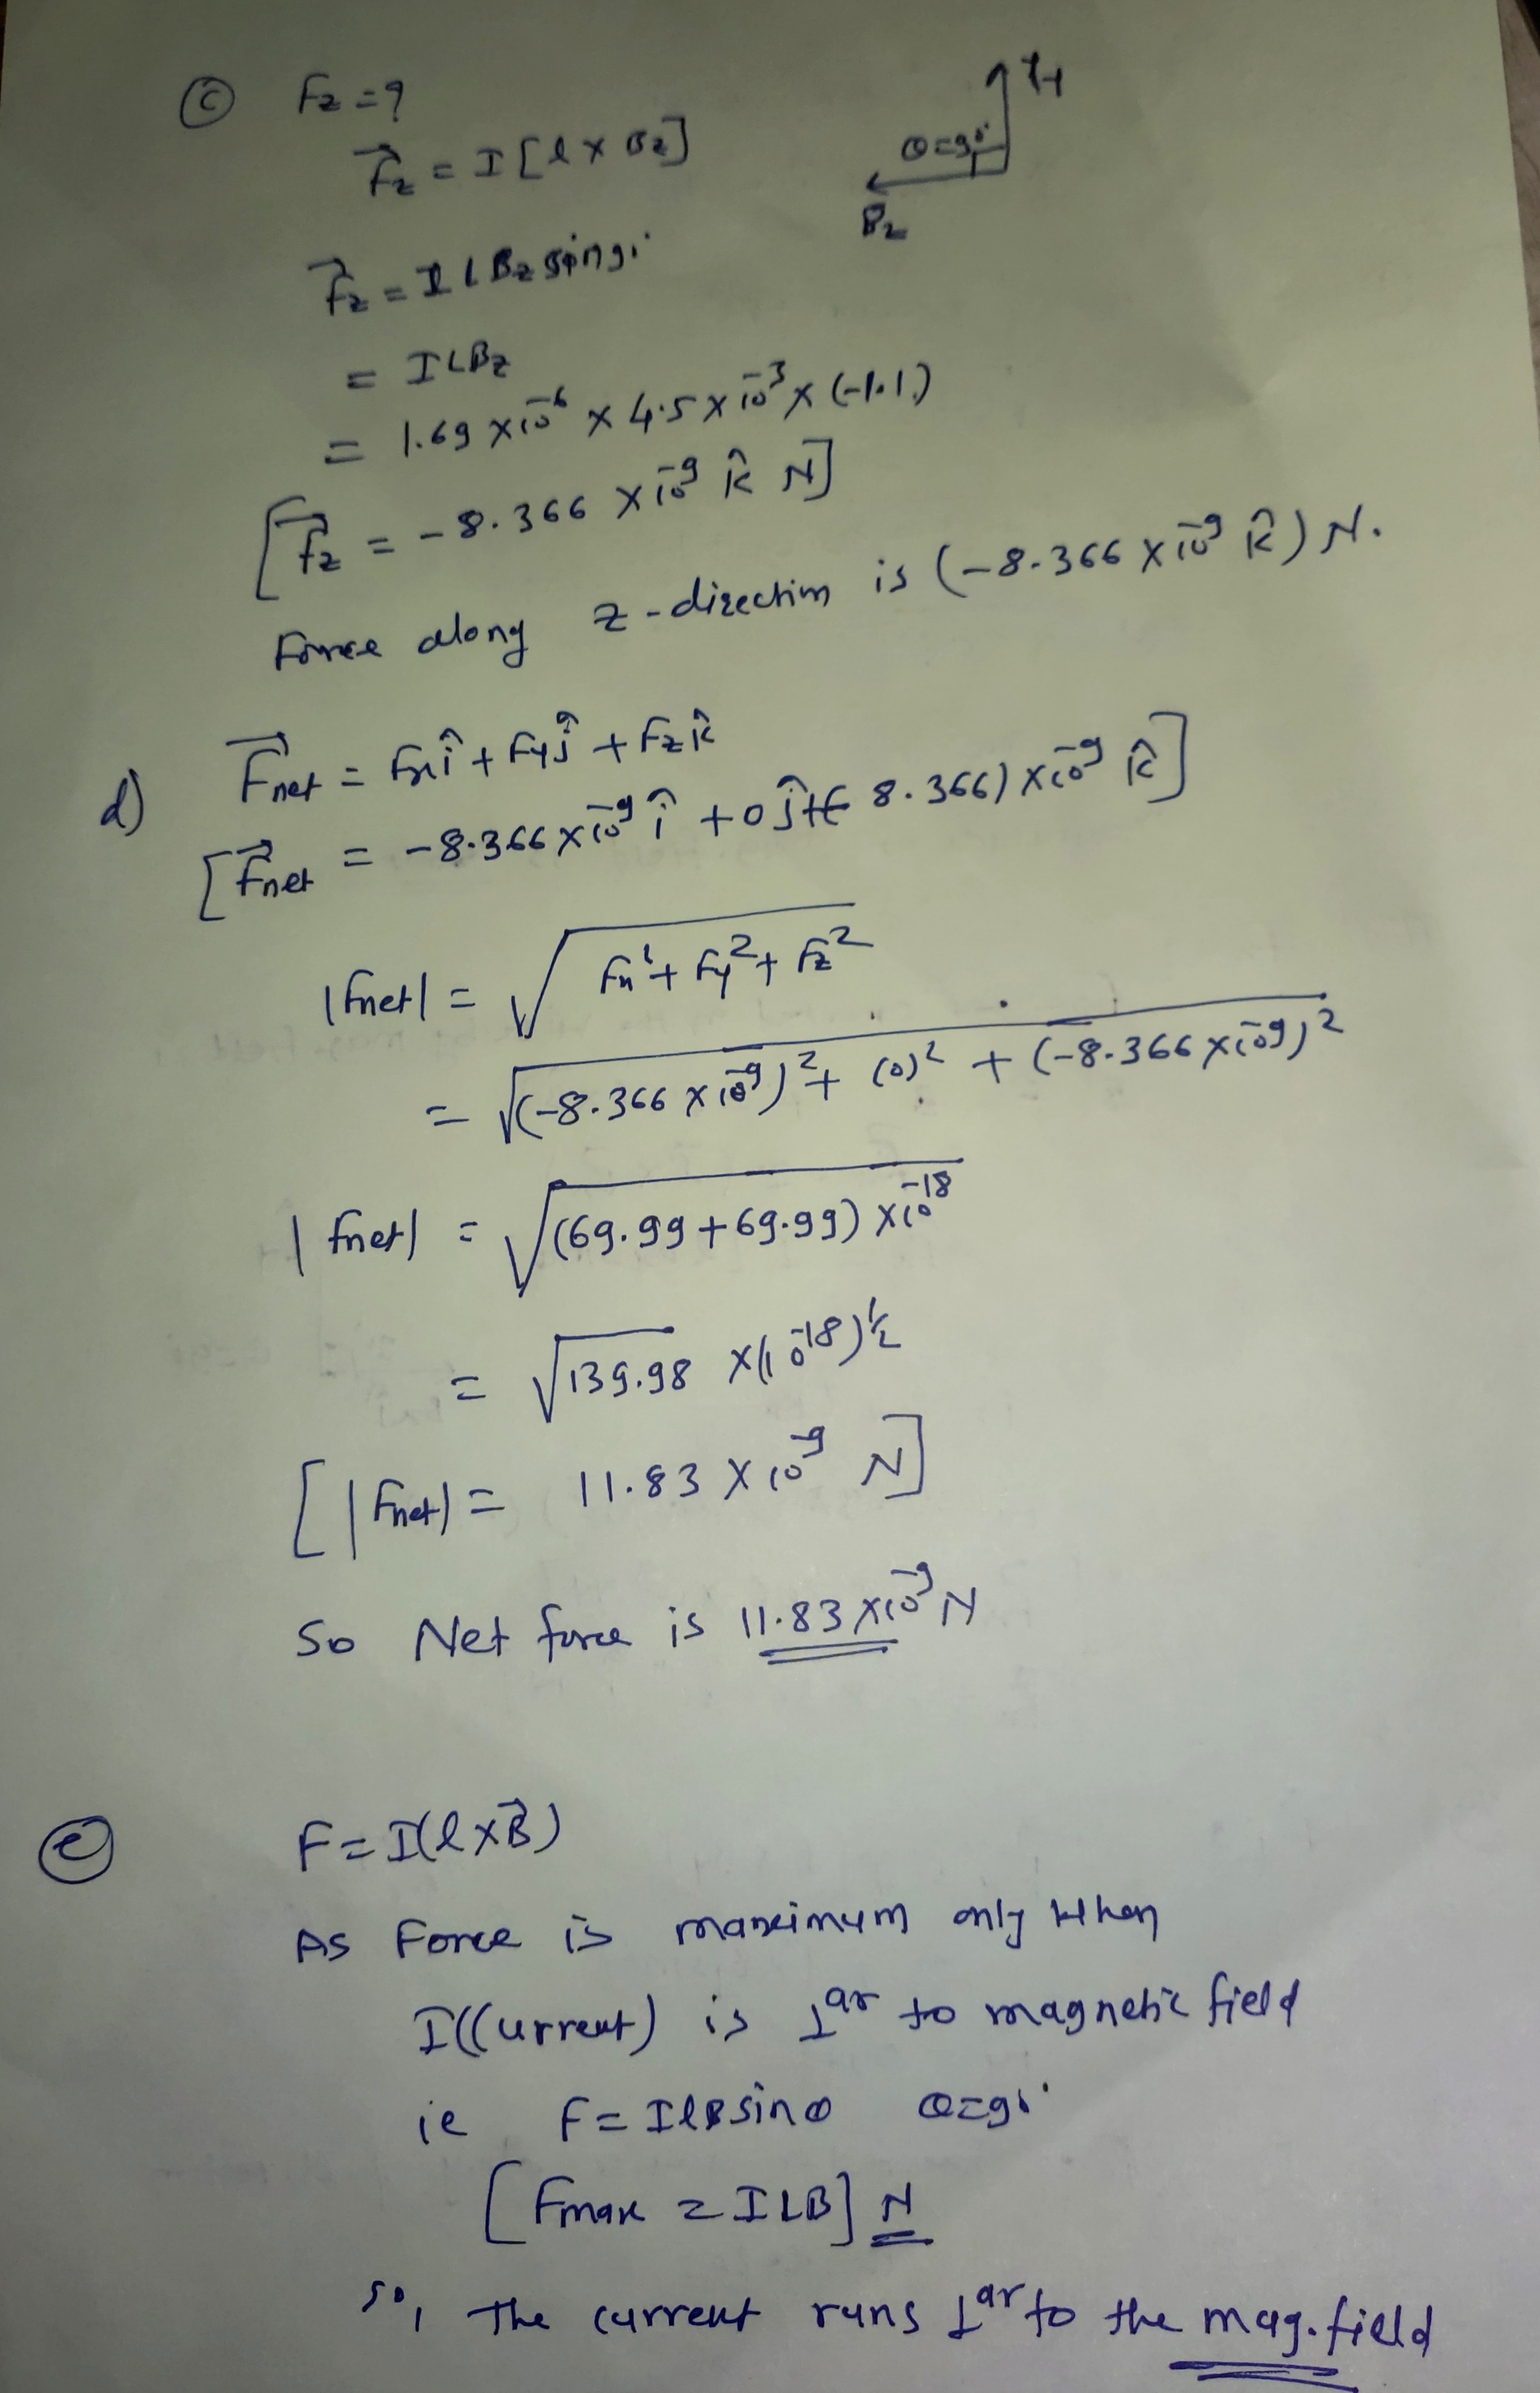 ⓒ Fz = ?
F⃗z = I [l × Bz]
θ=90°
Bz
F⃗z = I l Bz sin90°
= ILBz
= 1.69 × 10⁻⁶ × 4.5 × 10⁻³ × (-1.1)
[F⃗z = -8.366 × 10⁻⁹ k̂ N]
Force along z-direction is (-8.366 × 10⁻⁹ k̂) N.
d) F⃗net = Fxî + Fyĵ + Fzk̂
[F⃗net = -8.366 × 10⁻⁹ î + 0ĵ + (-8.366) × 10⁻⁹ k̂]
|Fnet| = √(Fx² + Fy² + Fz²)
= √((-8.366 × 10⁻⁹)² + (0)² + (-8.366 × 10⁻⁹)²)
|Fnet| = √((69.99 + 69.99) × 10⁻¹⁸)
= √139.98 × (10⁻¹⁸)^½
[|Fnet| = 11.83 × 10⁻⁹ N]
So Net force is 11.83 × 10⁻⁹ N
ⓔ F = I(l × B⃗)
As Force is maximum only when
I(current) is ⊥ar to magnetic field
ie F = IlBsinθ θ=90°
[Fmax = ILB] N
so, the current runs ⊥ar to the mag. field